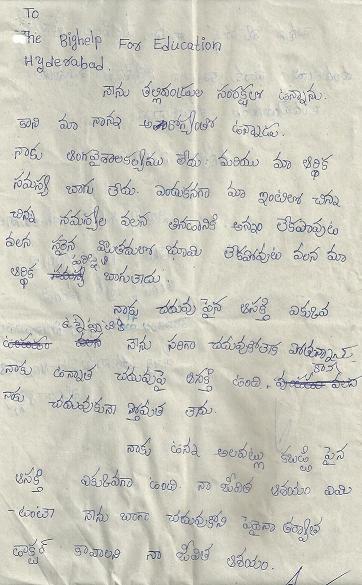 To
The Bighelp For Education
Hyderabad.
నేను తల్లిదండ్రుల సంరక్షణలో ఉన్నాను.
కాని మా నాన్న అనారోగ్యంతో ఉన్నాడు.
నాకు అంగవైకల్యము లేదు. మరియు మా ఆర్థిక
సమస్య బాగు లేదు. ఎందుకనగా మా ఇంటిలో చిన్న
చిన్న సమస్యల వలన తినడానికి అన్నం లేకపోవుట
వలన సరైన భూమి లేకపోవుట వలన మా
ఆర్థిక పరిస్థితి బాగులేదు.
నాకు చదువు పైన ఆసక్తి ఎక్కువ
నేను సరిగా చదువుకోలేక పోతున్నాను.
నాకు ఉన్నత చదువుపై ఆసక్తి ఉంది. కాని
నాకు చదువుకునే స్తోమత లేదు.
నాకు ఉన్న అలవాట్లు కబడ్డి పైన
ఆసక్తి ఎక్కువగా ఉంది. నా జీవిత ఆశయం ఏమి
-టంటే నేను బాగా చదువుకొని పైన తర్వాత
డాక్టర్ కావాలని నా జీవిత ఆశయం.